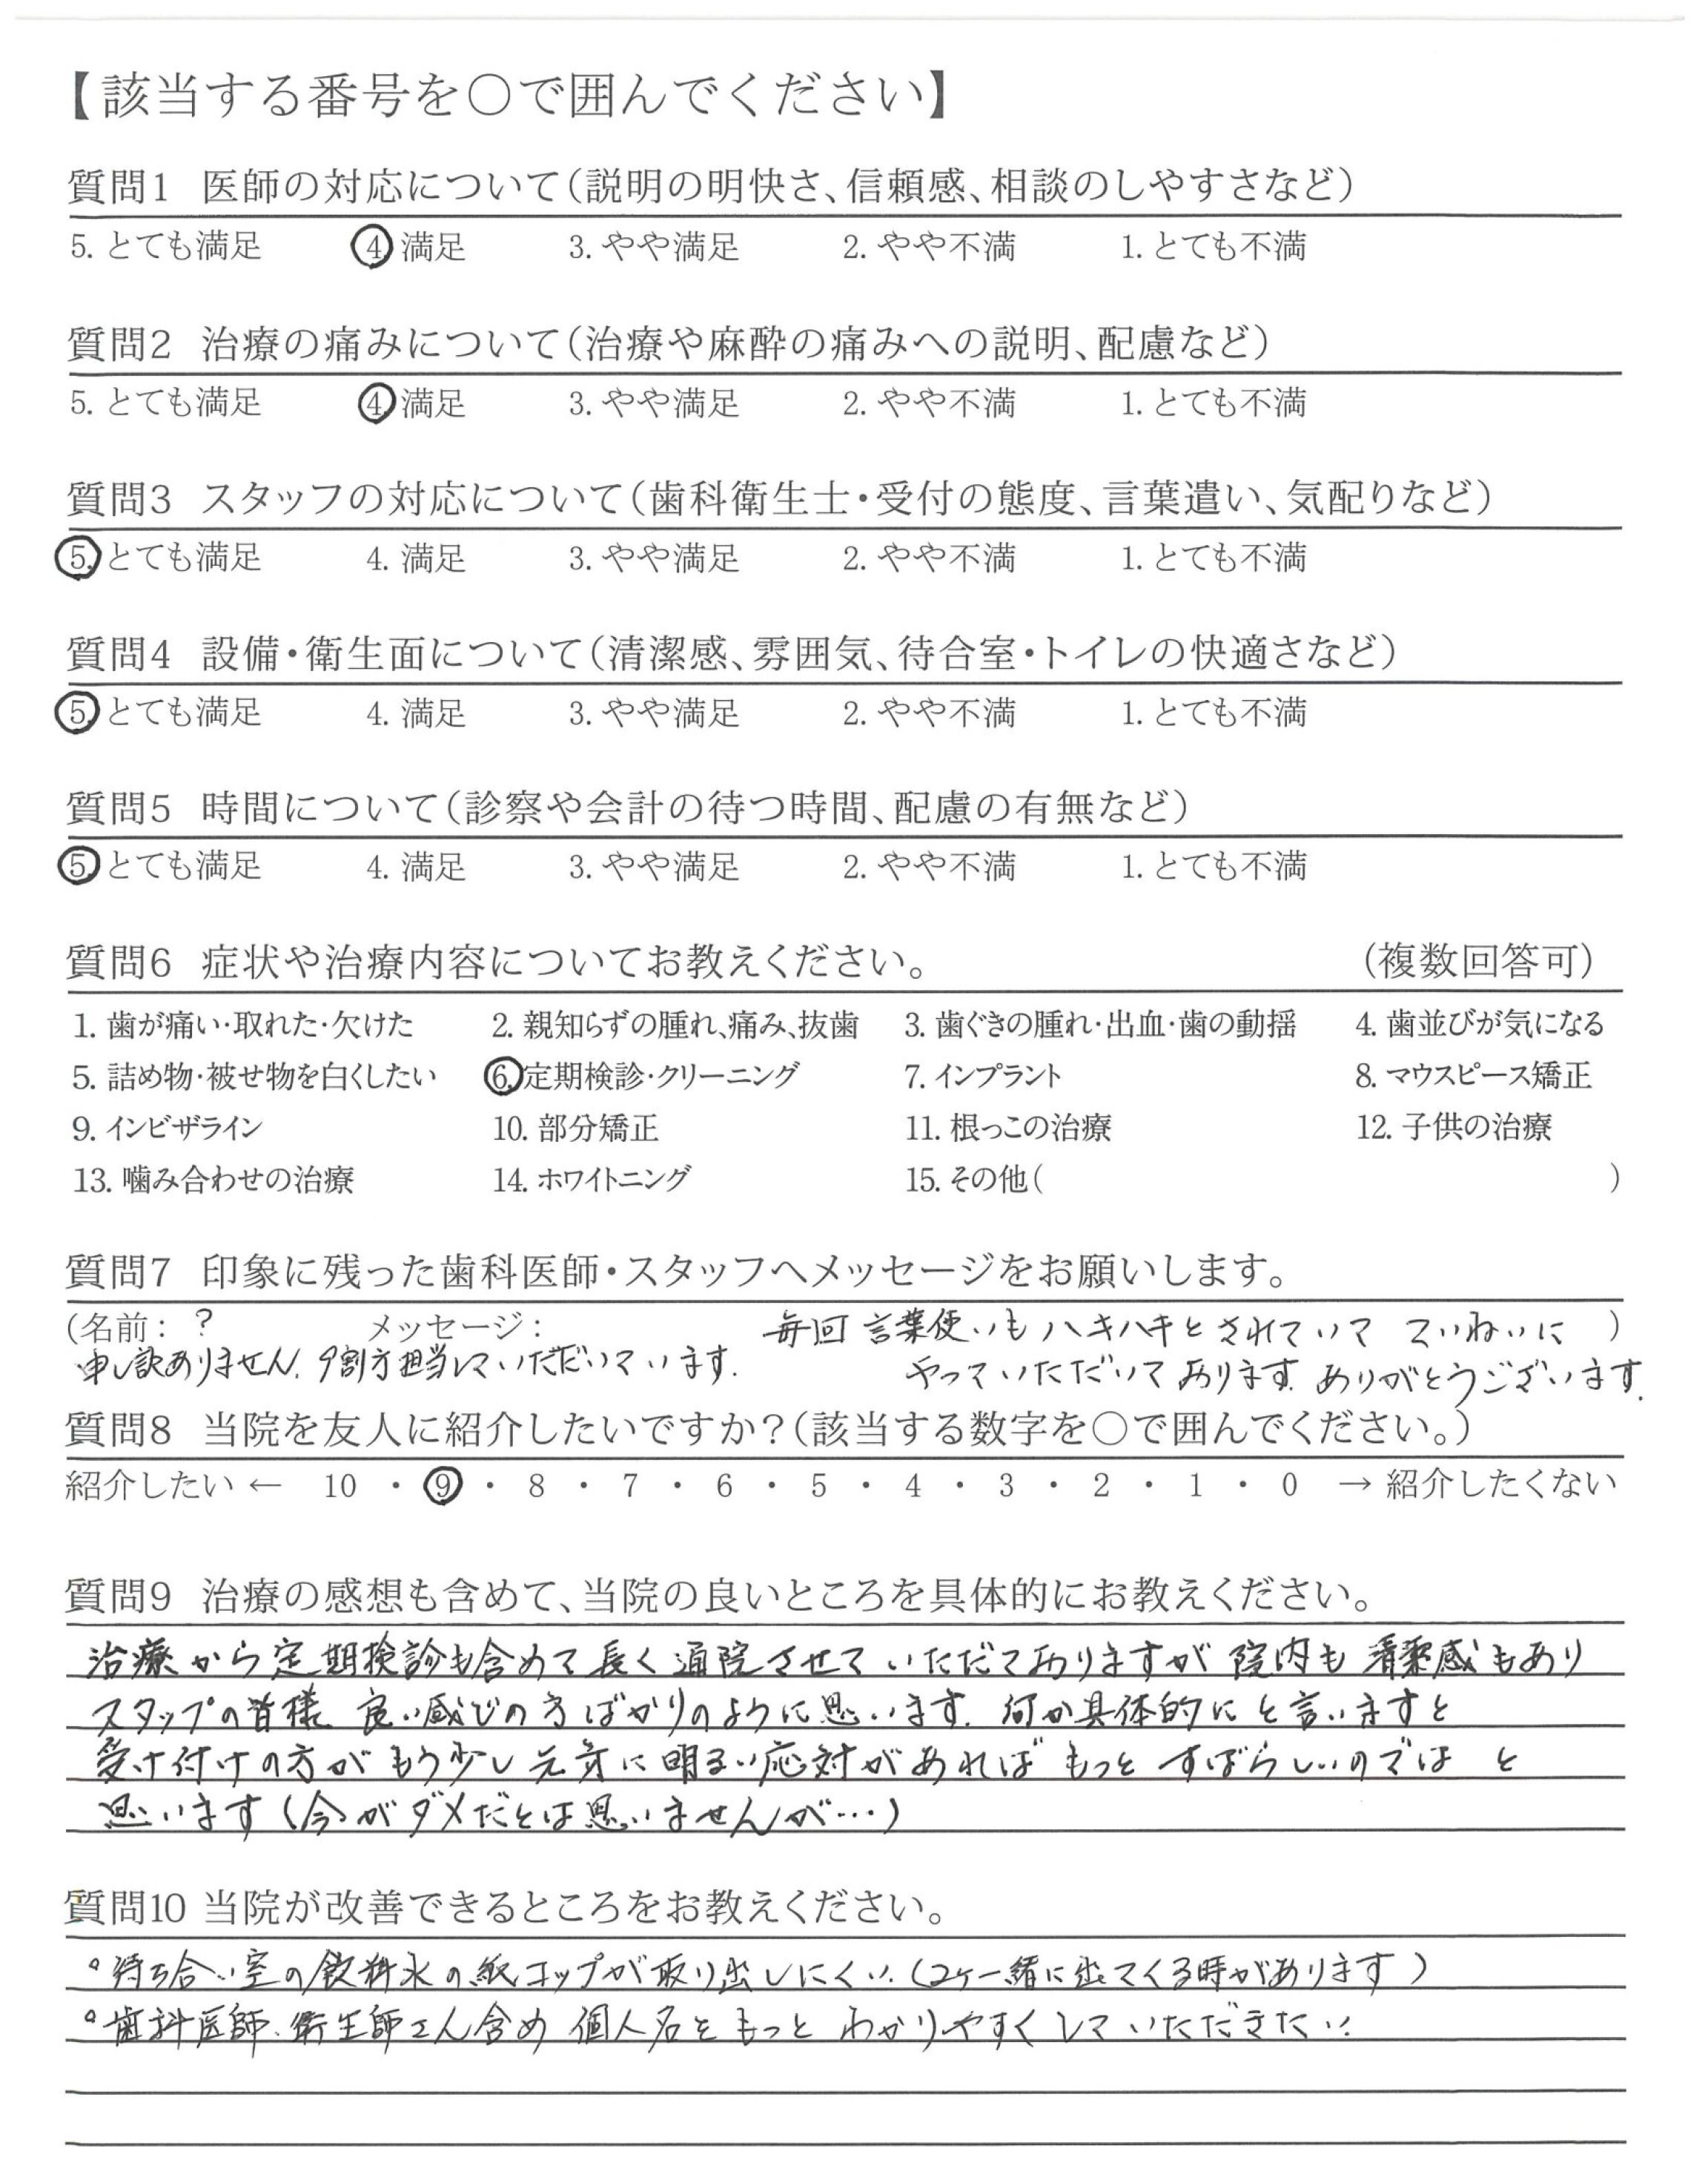 【該当する番号を○で囲んでください】
質問1 医師の対応について(説明の明快さ、信頼感、相談のしやすさなど)
5. とても満足 4. 満足 3. やや満足 2. やや不満 1. とても不満
質問2 治療の痛みについて(治療や麻酔の痛みへの説明、配慮など)
5. とても満足 4. 満足 3. やや満足 2. やや不満 1. とても不満
質問3 スタッフの対応について(歯科衛生士・受付の態度、言葉遣い、気配りなど)
5. とても満足 4. 満足 3. やや満足 2. やや不満 1. とても不満
質問4 設備・衛生面について(清潔感、雰囲気、待合室・トイレの快適さなど)
5. とても満足 4. 満足 3. やや満足 2. やや不満 1. とても不満
質問5 時間について(診察や会計の待つ時間、配慮の有無など)
5. とても満足 4. 満足 3. やや満足 2. やや不満 1. とても不満
質問6 症状や治療内容についてお教えください。 (複数回答可)
1. 歯が痛い・取れた・欠けた 2. 親知らずの腫れ、痛み、抜歯 3. 歯ぐきの腫れ・出血・歯の動揺 4. 歯並びが気になる
5. 詰め物・被せ物を白くしたい 6. 定期検診・クリーニング 7. インプラント 8. マウスピース矯正
9. インビザライン 10. 部分矯正 11. 根っこの治療 12. 子供の治療
13. 噛み合わせの治療 14. ホワイトニング 15. その他( )
質問7 印象に残った歯科医師・スタッフへメッセージをお願いします。
(名前: ? メッセージ: 毎回 言葉使いも ハキハキとされていて ていねいに )
申し訳ありません. 9割方担当していただいています. やっていただいて おります. ありがとうございます.
質問8 当院を友人に紹介したいですか?(該当する数字を○で囲んでください。)
紹介したい ← 10 ・ 9 ・ 8 ・ 7 ・ 6 ・ 5 ・ 4 ・ 3 ・ 2 ・ 1 ・ 0 → 紹介したくない
質問9 治療の感想も含めて、当院の良いところを具体的にお教えください。
治療から定期検診も含めて 長く通院させて いただておりますが 院内も 清潔感もあり
スタッフの皆様 良い感じの方ばかりのように思います. 何か具体的に と言いますと
受け付けの方が もう少し 元気に 明るい応対があれば もっと すばらしいのでは と
思います (今がダメだとは思いませんが…)
質問10 当院が改善できるところをお教えください。
。待ち合い室の飲料水の紙コップが取り出しにくい. (2ヶ一緒に出てくる時があります)
。歯科医師. 衛生師さん含め 個人名をもっと わかりやすく していただきたい.